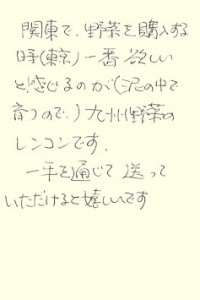 関東で、野菜を購入する
時(東京)一番欲しい
と感じるのが(泥の中で
育つので、)九州野菜の
レンコンです.
一年を通じて送って
いただけると嬉しいです